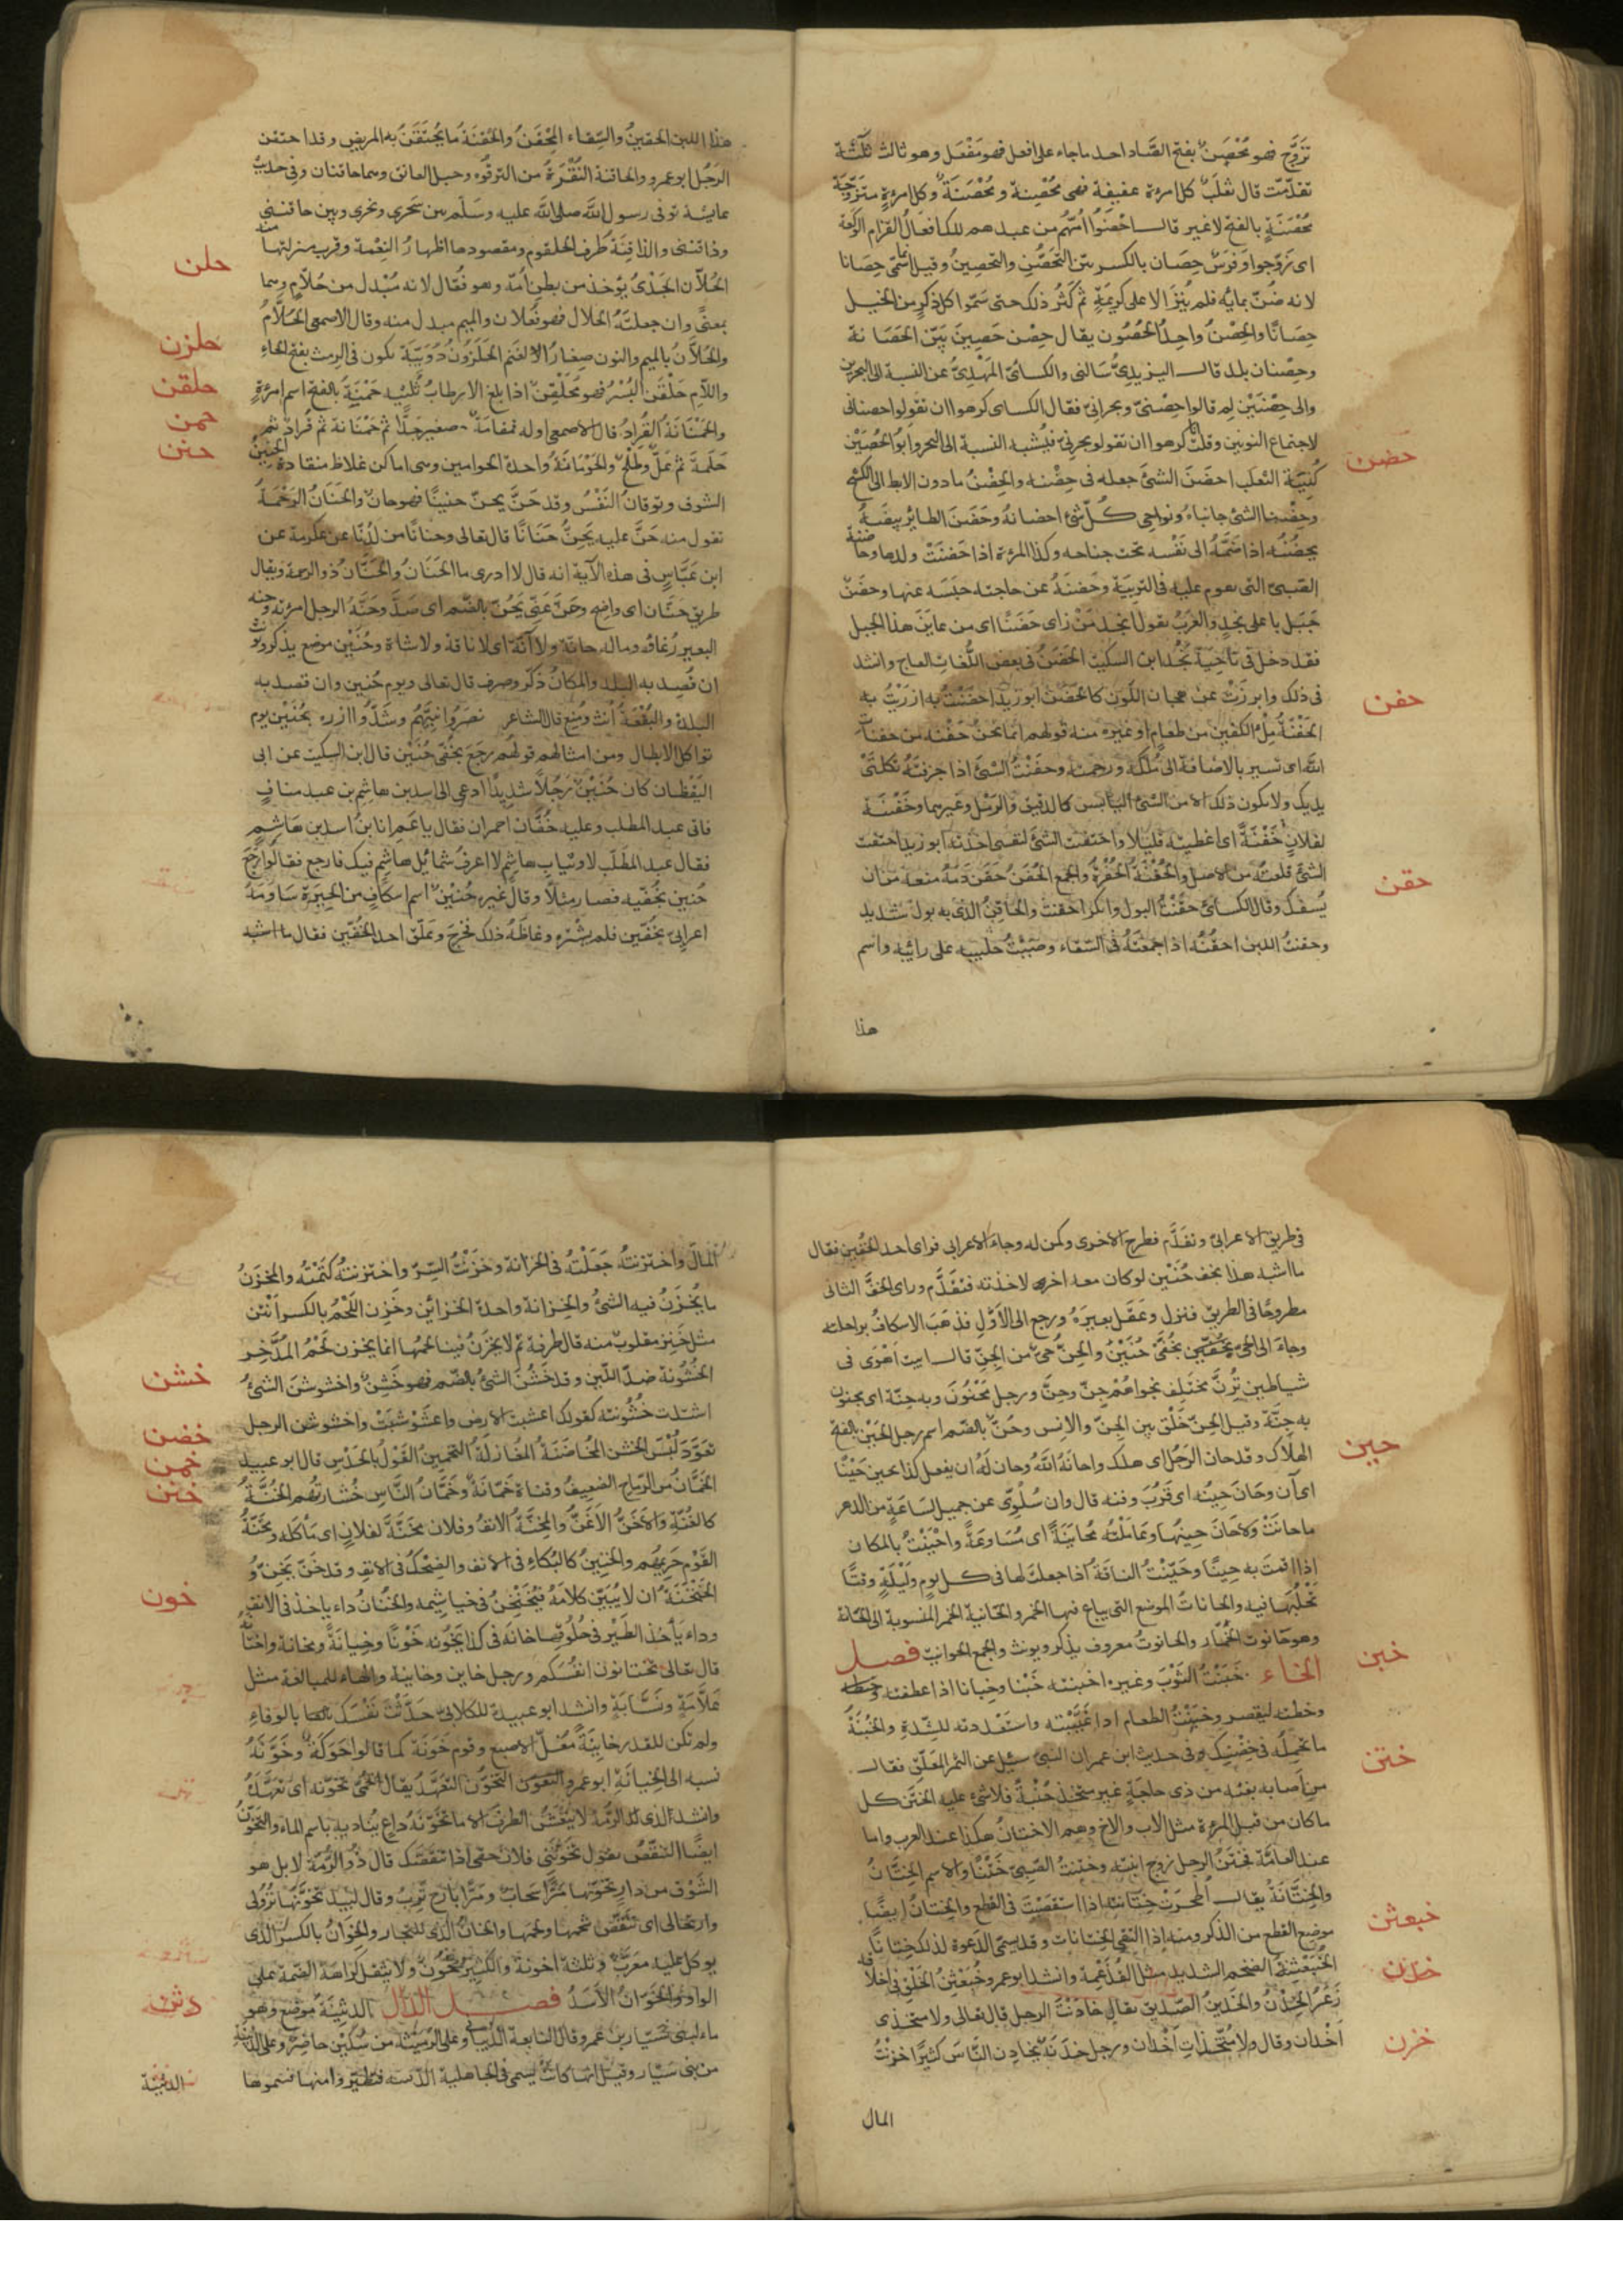 تزوّج فهو مُحْصَنٌ بفتح الصّاد احد ماجاء على افعل فهو مُفْعَل وهو ثالث ثلثة
تقدّمت قال ثعلب كل امرءة عفيفة فهى مُحْصِنة ومُحْصَنَةٌ وكل امرءةٍ متزوّجة
مُحْصَنَةٍ بالفتح لاغير قال احْصَنُوا امّهم من عبدهم تلك افعال القزام الوَكَعة
اى زوّجوا وفرسٌ حِصَان بالكسر بيّن التحصّن والتحصين وقيل انّما سمّى حِصَانا
لانه ضُنّ بمائه فلم يُنْزَ الا على كريمةٍ ثم كَثُر ذلك حتى سمّوا كل ذكرٍ من الخيل
حِصَانًا والحِصْنُ واحد الحُصُون يقال حِصْن حَصِينٌ بيّن الحَصَانة
وحِصْنان بلد قال اليزيدىّ سالنى والكسائىَّ المَهْدِىُّ عن النسبة الى البحرين
والى حِصْنَيْن لم قالوا حِصْنىّ وبحرانىّ فقال الكساى كرهوا ان يقولوا حصنانى
لاجتماع النونين وقلت انا كرهوا ان يقولو بحرىّ فيُشبه النسبة الى البحر وابو الحُصَيْن
كُنْيَة الثعلب احضَنَ الشئَ جعله فى حِضْنه والحِضْنُ مادون الابط الى الكَشْح
وحِضْنا الشئ جانباه ونواحى كلّ شئ احضانه وحَضَنَ الطائر بيضَهُ
يحضُنُه اذا ضَمَّهُ الى نَفْسه تحت جناحه وكذا المرءة اذا حَضنَتْ ولدها وحاضنة
الصّبىّ التى تقوم عليه فى التربيَة وحَضنَهُ عن حاجته حبَسَه عنها وحضَنٌ
جَبَل باعلى نجدٍ والعَرَبُ تقول انجدَ مَنْ راى حَضَنًا اى من عاين هذا الجبل
فقد دخل فى ناحية نجد ابن السكيت الحَضَنُ فى بعض اللّغات العاج وانشد
فى ذلك وابرزَتْ عن هجان اللون كالحَضَن ابوزيد احضَنْتُ به ازرَيْتُ به
الحَفْنَةُ مِلْءُ الكفين من طعام او غيره منه قولهم انما نحنُ حَفْنه من حفنات
الله اى يسير بالاضافة الى مُلْكه ورحمته وحفَنْتُ الشئ اذا جرفتَهُ بكلتَىْ
يديك ولا يكون ذلك الا من الشئ اليابس كالدقيق والرمل وغيرهما وحفَنْتُ
لفلانٍ حَفْنَةً اى اعطيته قليلا واحتفنتُ الشئَ لنفسى اخذته ابوزيد احتفنت
الشئ قلعتُه من الاصل والحُقْنَةُ الحُفْرة والجمع الحُفَنُ حَقَنَ دَمهُ منعه من ان
يُسْفك وقال الكسائىّ حقَنْتُ البول وانكر احقنتُ والحاقِنُ الذى به بول شديد
وحقنتُ اللبن احقُنُه اذا جمعتَهُ فى السّقاء وصَبَبْتُ حليبه على رائبه واسم
هذا
حضن
حفن
حقن
هذا اللبن الحقينُ والسّقاء المِحْقَنُ والحُقنَةُ مايُحْتَقَنُ به المريض وقد احتقن
الرَجُل ابوعمرو والحاقنة النُقْرَةُ من الترقُوه وحبل العاتق وهما حاقنتان وفى حديث
عائشة توفى رسول الله صلى الله عليه وسلّم بين سَحْرى ونحرى وبين حاقنتى
وذاقنتى والذاقِنَة طَرف الحلقوم ومقصودها اظهارُ النِعْمة وقرب منزلتها منه
الحُلّان الجَدْىُ يؤخذ من بطن امّه وهو فُعّال لانه مُبْدل من حُلّامٍ وهما
بمعنًى وان جعلتَهُ الحلال فهو فُعلان والميم مبدل منه وقال الاصمعى الحُلّامُ
والحُلّانُ بالميم والنون صغار الغَنَم الحَلَزُونُ دُوَيْبّة تكون فى الرِمْث بفتح الحاءِ
واللام حَلْقَنَ البُسْرُ فهو مُحَلْقِنٌ اذا بلغ الارطاب ثُلثيه حَمْنَةُ بالفتح اسم امرءةٍ
والحَمْنَانَةُ القُرادُ قال الاصمعى اوله قمقامَةٌ صغيرجدًّا ثم حَمْنَانة ثم قُرادٌ ثم
حَلَمةٌ ثم عَلٌّ وطِلْحٌ والحَوْمَانَةُ واحدة الحوامين وهى اماكن غلاظ منقادة الحنينُ
الشوق وتوقانُ النَفْس وقد حَنَّ يحنّ حنينًا فهو حانّ والحَنَانُ الرَحْمَةُ
تقول منه حَنَّ عليه يَحِنُّ حَنَانًا قال تعالى وحنانًا من لَدُنّا عن عكرمة عن
ابن عبّاسٍ فى هذه الآية انه قال لا ادرى ما الحَنَانُ والحَنَّانُ ذوالرحمة ويقال
طريق حَنَّان اى واضح وحَنَّ عَنِّى يَحُنّ بالضّم اى صَدَّ وحَنَّةُ الرجل امرءته وحنه
البعير رُغاؤه وماله حانّة ولا آنّة اى لا ناقة ولا شاة وحُنَيْن موضع يذكر ويؤنث
ان قُصِد به البلد والمكانُ ذكّر وصرف قال تعالى ويوم حُنين وان قصد به
البلدة والبُقْعَةُ أنّث ومُنِع قال الشاعر نصَرُوا نبيّهُم وشَدُّوا ازره بحُنَيْن يوم
تواكل الابطال ومن امثالهم قولهُم رجَع بخُفَّى حُنَيْن قال ابن السكيت عن ابى
اليَقْظان كان حُنَيْنٌ رَجُلًا شديدًا ادعى الى اسد بن هاشم بن عبد منافٍ
فاتى عبد المطلب وعليه خُفّان احمران فقال ياعَم انا ابنُ اسد بن هَاشِمٍ
فقال عبد المطلب لا وثيابِ هاشم لا اعرف شمائل هاشم فيك فارجع فقالوا رجع
حُنين بخُفّيه فصار مثلًا وقال غيره حُنَيْنٌ اسم اسكافٍ من الحِيرة سَاوَمَهُ
اعرابىّ بخُفّين فلم يشْتره وغاظَهُ ذلك فخرج وعَلّق احد الخُفّين فقال ما اشبه
حلن
حلزن
حلقن
حمن
حنن
فى طريق الاعرابىّ وتقدّم فطرح الاخرى وكمن له وجاء الاعرابى فراى احد الخُفين فقال
ما اشبه هذا بخف حُنَيْن لو كان معه اخرى لاخذته فتقدّم وراى الخفّ الثانى
مطروحًا فى الطريق فنزل وعَقَل بعيرَهُ ورجع الى الاوّل فذهَبَ الاسكافُ براحلته
وجاء الى الحىّ بخُفّين بخُفَّىْ حُنَيْنٍ والحِنُّ حىّ من الجنّ قال ابيت اهْوَى فى
شياطين تُرِنّ مختلِف نجواهُمْ جنّ وحِنّ ورجل مَحْنُونٌ وبه حِنّة اى مجنون
به جِنّة وقيل الحِنّ خَلْق بين الجِنّ والانس وحُنّ بالضّم اسم رجل الحَيْن بالفتح
الهلاك وقد حان الرَجُل اى هلك واحانَهُ اللّه وحان له ان يفعل كذا يحين حَيْنًا
اى آن وحَانَ حِينُه اى قَرُبَ وقته قال وان سُلُوّى عن جميل لسَاعَة من الدهر
ماحانَتْ ولاحَان حِينُها وعاملْتُه مُحَايَنَةً اى مُسَاوعَةً واحْيَنْتُ بالمكان
اذا اقمت به حِينًا وحَيّنْتُ الناقَة اذا جعلت لها فى كل يوم وليلةٍ وقتًا
تَحْلُبُها فيه والحانات الموضع التى يباع فيها الخمر والحانية الخمر المنسوبة الى الحانة
وهو حَانوت الخَمّار والحانوت معروف يذكر ويونث والجمع الحوانيت فصل
الخاء خَبَنْتُ الثوْبَ وغيره اخبنته خَبْنا وخبانا اذا عطفته
وخطته ليقصر وخبَنْتُ الطعام اذا غَيَّبْته واستعددته للشّدة والخُبْنَةُ
ماتحمِلُه فى حِضْنِك وفى حديث ابن عمر ان النبى سئل عن الثمر المعَلّق فقال
من اصابه بفيْه من ذى حاجةٍ غير متّخذ خُبْنةً فلا شئ عليه الخَتَن كل
ماكان من قبل المرءة مثل الاب والاخ وهم الاختانُ هكذا عند العرب واما
عند العامّة فختَنُ الرجل زوج ابنته وختنتُ الصّبىّ خَتْنًا والاسم الختانُ
والخِتَانَةُ يقال اُطْحِرَتْ خِتانته اذا استقصيت فى القطع والخِتانُ ايضًا
موضع القطع من الذكر ومنه اذا التقى الختانان وقد يسمّى الدَعوة لذلك خِتانًا
الخُبَعْثِنَةُ الضخم الشديد مثل القُذَعْمِلة وانشد ابوعمرو خُبَعْثِنُ الخَلْقِ فى اخلاقه
زَعَرُ الخِدْنُ والخَدينُ الصّديق يقال خَادَنْتُ الرجل قال تعالى ولا متخذى
اخْدَان وقال ولا مُتّخِذاتِ اخْدان ورجل خُدَنَةٌ يخادن النّاسَ كثيرًا خزنْتُ
المال
حين
خبن
ختن
خبعثن
خدن
خزن
المالَ واختزنتُه جَعَلْتُه فى الخزانة وخزَنْتُ السِّرّ واختزنتُه كتمتُه والمخزَنُ
مايُخْزَنُ فيه الشئُ والخِزانة واحدة الخزائن وخَزِن اللَحْمُ بالكسر انتن
مثل خَنِز مقلوبٌ منه قال طرفة ثم لا يخزَنُ فينا لحمها انما يخزن لحْمُ المُدَّخِر
الخُشُونة ضدّ اللّين وقد خَشُنَ الشئُ بالضّم فهو خَشِنٌ واخشوشنَ الشئُ
اشتدّت خُشُونته كقولك اعشبت الارض واعشَوْشَبَتْ واخشوشن الرجل
تعوَّدَ لُبْسَ الخشن المُخَاضَنَةُ المُغازلةُ التخمين القوْلُ بالحَدْس قال ابوعبيد
الخَمّانُ من الرّماح الضعيفُ وقناة خَمّانةٌ وخَمّانُ النّاسِ خُشارتُهم الخُنَّةُ
كالغُنّة والاخَنُّ الاغَنُّ والمَخنَّةُ الانفُ وفلان مَخَنَّة لفلانٍ اى مَاكلَه ومَخَنّةُ
القَوْم حَرِيمُهم والخنِينُ كالبُكاءِ فى الانف والضِحْكُ فى الانف وقد خَنّ يَخِنّ و
الخَنْخَنَةُ ان لا يُبيّن كلامَهُ فيُخَنْخِنُ فى خياشِيمه والخُنَانُ داء ياخذ فى الانف
وداء يَأخذ الطَيْر فى حُلُوقها خانَه فى كذا يَخُونه خَوْنًا وخِيانَةً ومخانة واختانه
قال تعالى تختانون انفُسَكم ورجل خاين وخاينة والهاء للمبالغة مثل
عَلّامَةٍ ونَسّابَةٍ وانشد ابوعبيد للكلابىّ حَدَّثْتَ نَفْسَك بالوفاءِ
ولم تكن للغدر خاينةً مُغلّ الاصبع وقوم خَوَنَة كما قالوا حَوَكَةٌ وخَوّنَهُ
نسبه الى الخيانَةِ ابوعمرو التخوّن التعَهّد يقال الحُمّىٰ تَخَوّنه اى تَعَهّدَهُ
وانشد لذى الرُمّة لا يَنْعَشُ الطرفَ الا ماتخوّنهُ داع يُناديه باسم الماء والتخوّنُ
ايضًا التنقّصُ يقول تخوَّنَنى فلان حقى اذا تنقّصَك قال ذُوالرُمّة لا بل هو
الشَوْق من دارٍ تخوّنها مَرًّا سَحابٌ ومَرًّا بارح تَرِبُ وقال لبيد تخَوَّنَها نُزولى
وارتحالى اى تنقّص شحمها ولحمها والخانُ الذى للتجّار والخِوَانُ بالكسر الذى
يوكل عليه معرّبٌ وثلثة اخونة والكثير خُونٌ ولا يثقل كراهة الضّمة على
الواو والخَوّانُ الأَسَدُ فصل الدّال الدثينَةُ موضع وهو
ماء لبنى سَيّار بن عَمرو قال النابغة الذبيانى وعلى الرُمَيْثه من سُكَيْن حاضر وعلى الدثينة
من بنى سَيّار وقيل انها كانت تسمى فى الجاهلية الدّفينه فتطيّروا منها فسموها
الدثينة
خشن
خضن
خمن
خنن
خون
دثن